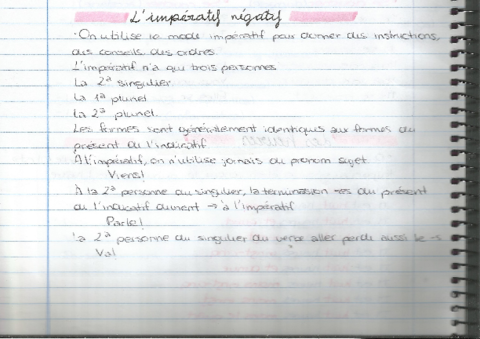 L'impératif négatif
· On utilise la mode impératif pour donner des instructions,
des conseils des ordres.
L'impératif n'a qui trois personnes
La 2ª singulier
La 1ª pluriel
La 2ª pluriel.
Les formes sont généralement identiques aux formes du
présent du l'indicatif
A l'impératif, on n'utilise jamais du pronom sujet.
Viens!
À la 2ª personne du singulier, la terminaison -es du présent
du l'indicatif devient → à l'impératif
Parle!
La 2ª personne du singulier du verbe aller perdu aussi le -s
Va!